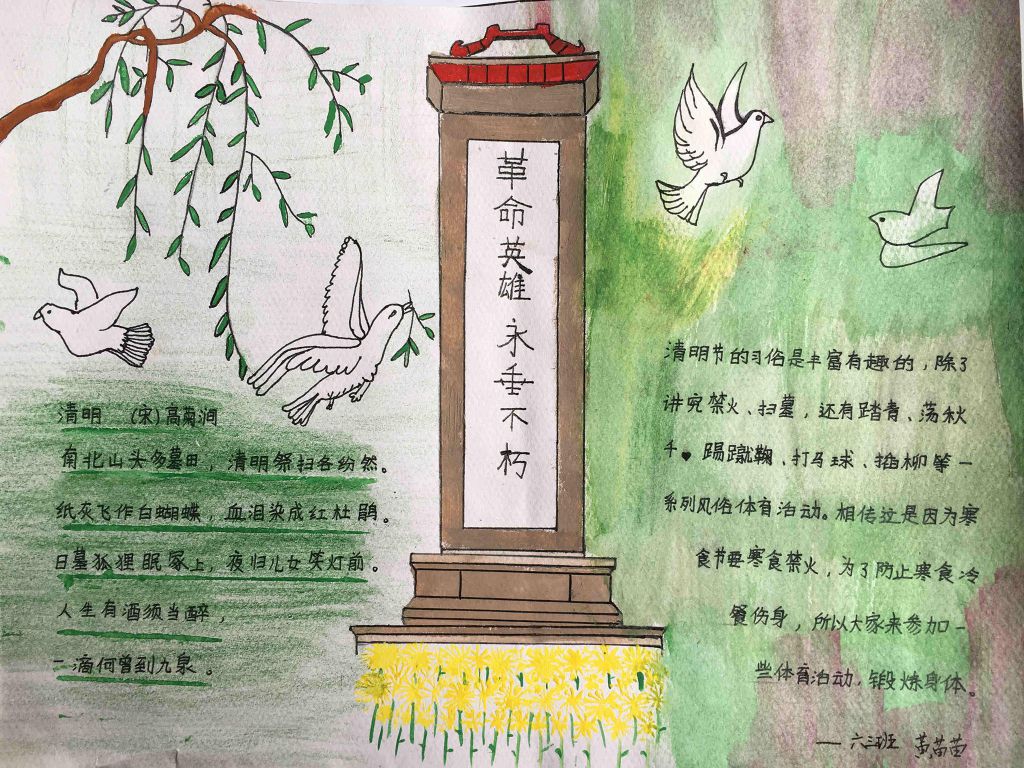 革命英雄永垂不朽
清明 (宋)高菊涧
南北山头多墓田，清明祭扫各纷然。
纸灰飞作白蝴蝶，血泪染成红杜鹃。
日墓狐狸眠冢上，夜归儿女笑灯前。
人生有酒须当醉，
一滴何曾到九泉。
清明节的习俗是丰富有趣的，除了
讲究禁火、扫墓，还有踏青、荡秋
千、踢蹴鞠、打马球、插柳等一
系列风俗体育活动。相传这是因为寒
食节要寒食禁火，为了防止寒食冷
餐伤身，所以大家来参加一
些体育活动，锻炼身体。
——六三班 黄苗苗